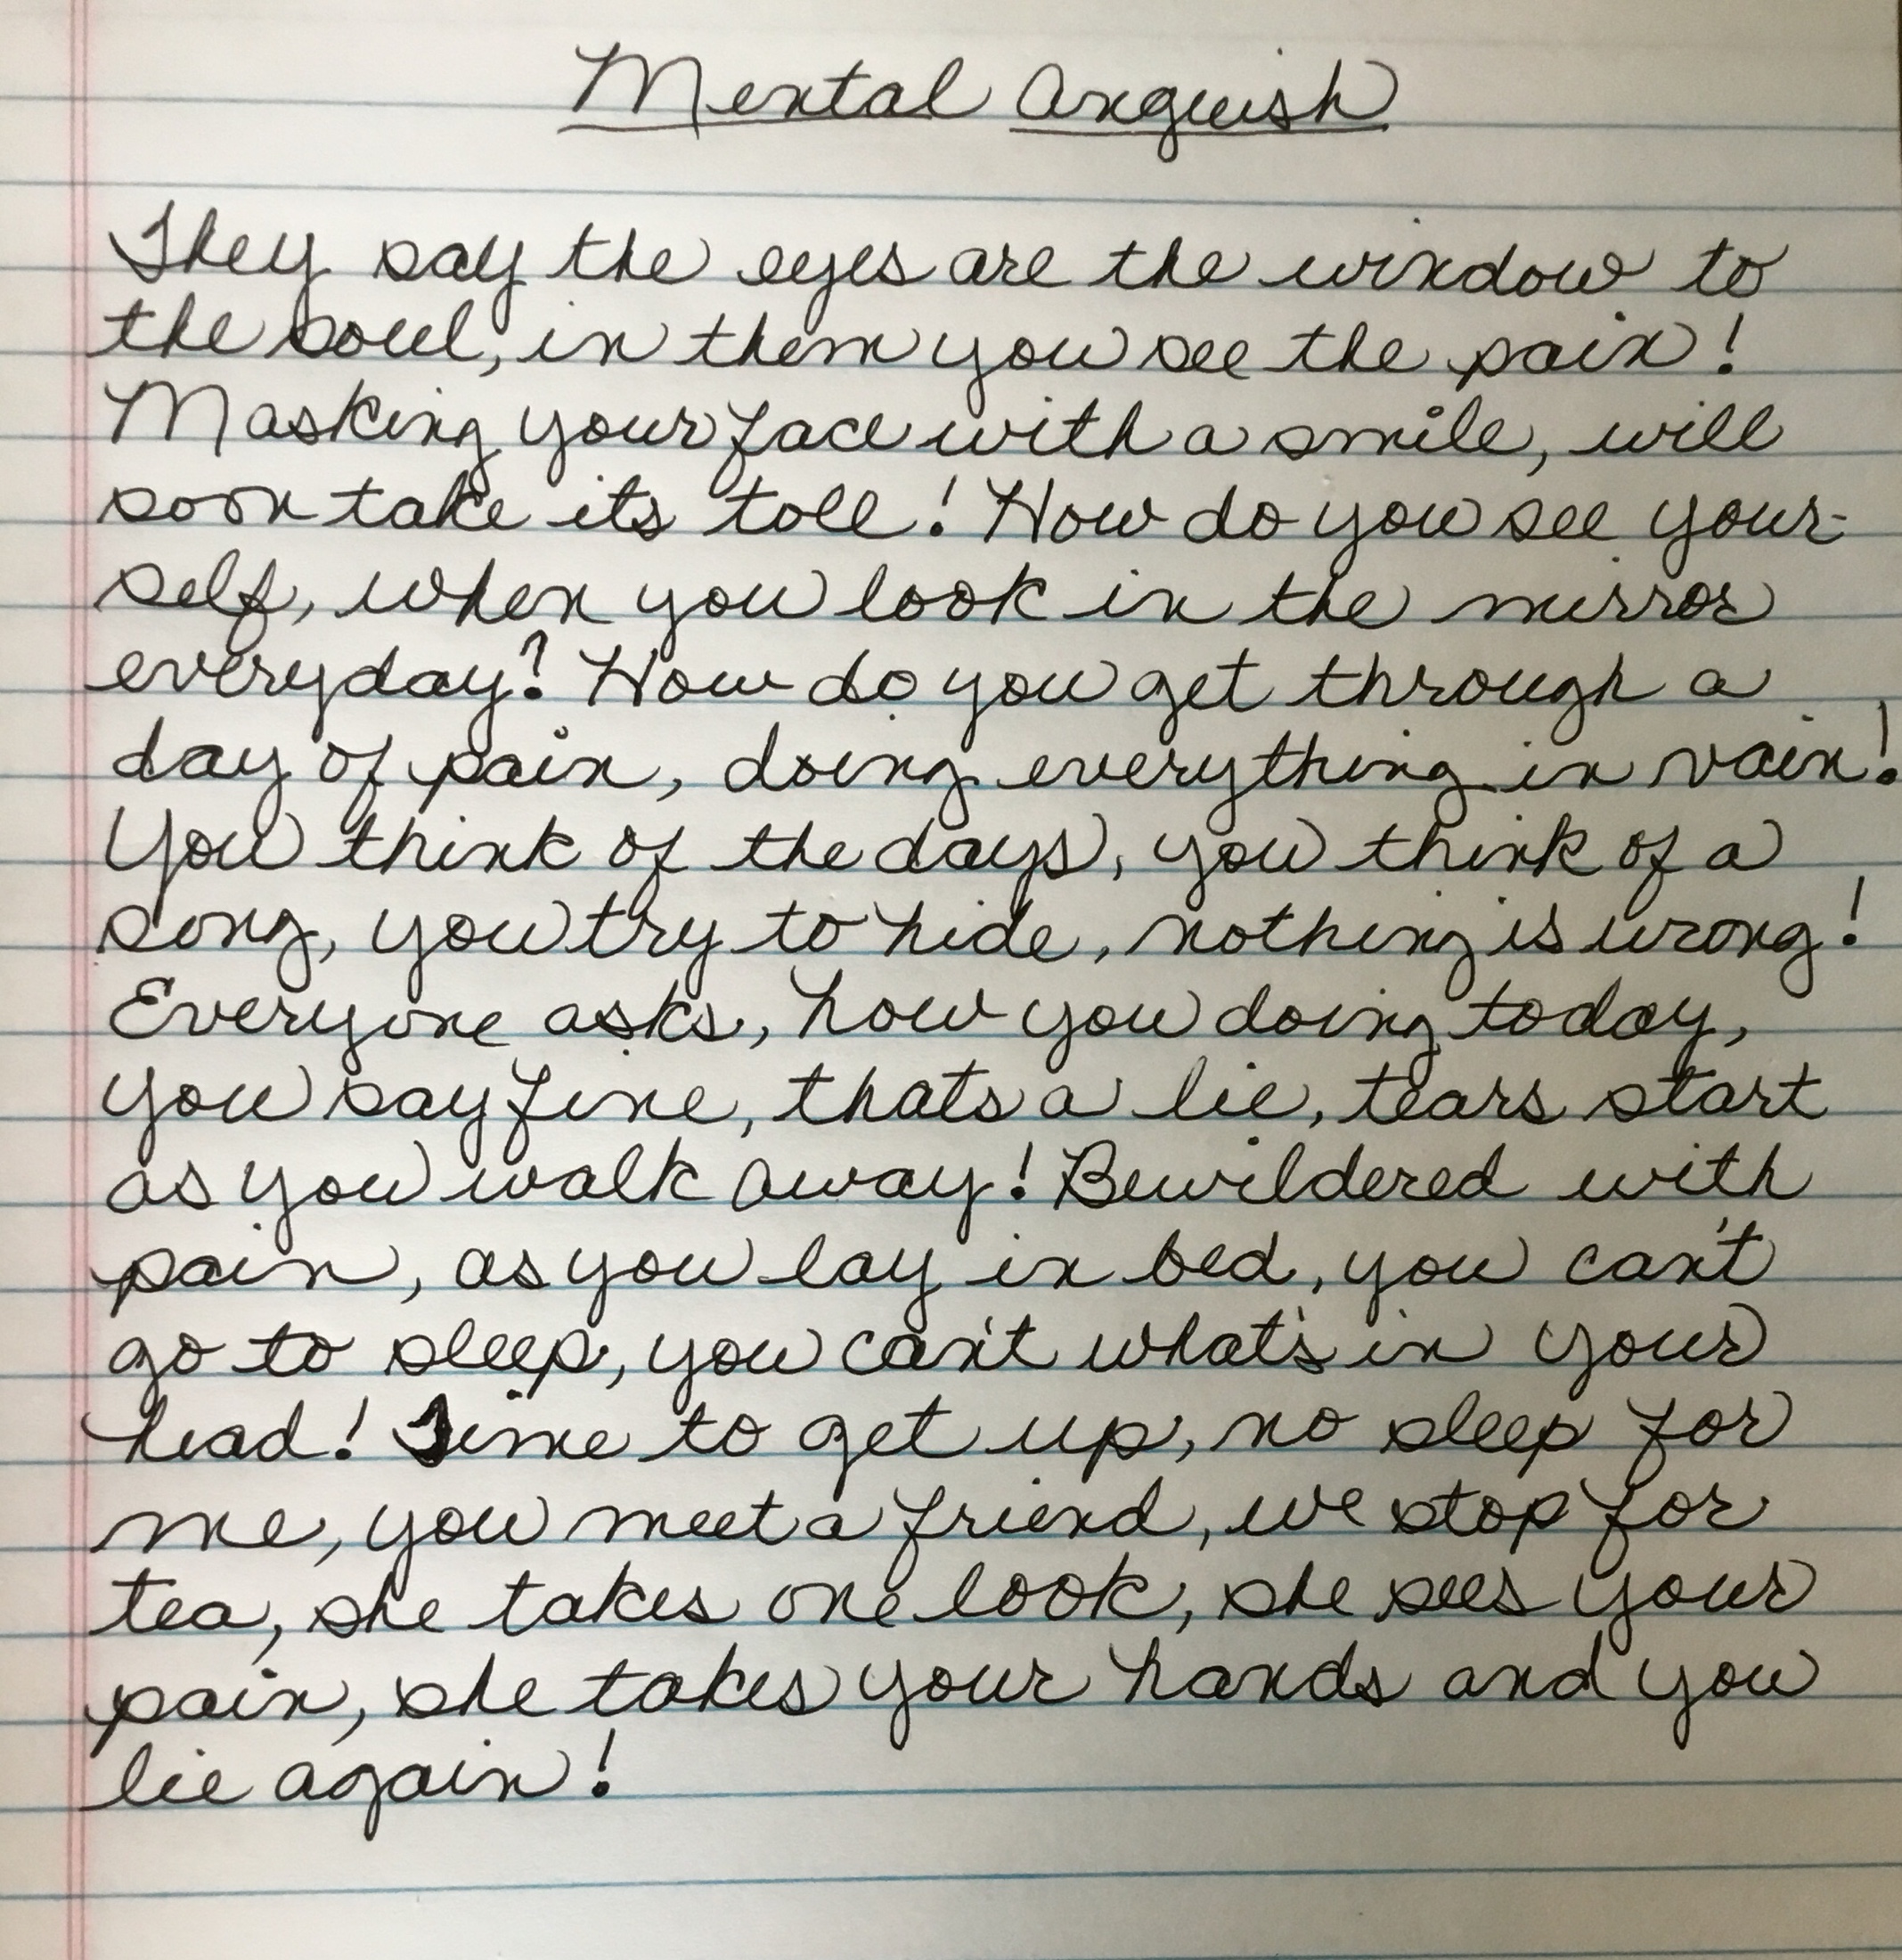 Mental Anguish
They say the eyes are the window to
the soul, in them you see the pain!
Masking your face with a smile, will
soon take its toll! How do you see your-
self, when you look in the mirror
everyday? How do you get through a
day of pain, doing everything in vain!
You think of the days, you think of a
song, you try to hide, nothing is wrong!
Everyone asks, how you doing today,
you say fine, thats a lie, tears start
as you walk away! Bewildered with
pain, as you lay in bed, you can't
go to sleep, you can't what's in your
head! Time to get up, no sleep for
me, you meet a friend, we stop for
tea, she takes one look, she sees your
pain, she takes your hands and you
lie again!